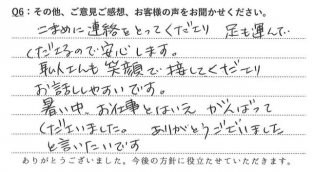 Q6：その他、ご意見ご感想、お客様の声をお聞かせください。
こまめに連絡をとってくださり 足も運んで
くださるので安心します。
私にも 笑顔で接してくださり
お話ししやすいです。
暑い中、お仕事とはいえ がんばって
くださいました。 ありがとうございました
と言いたいです
ありがとうございました。今後の方針に役立たせていただきます。